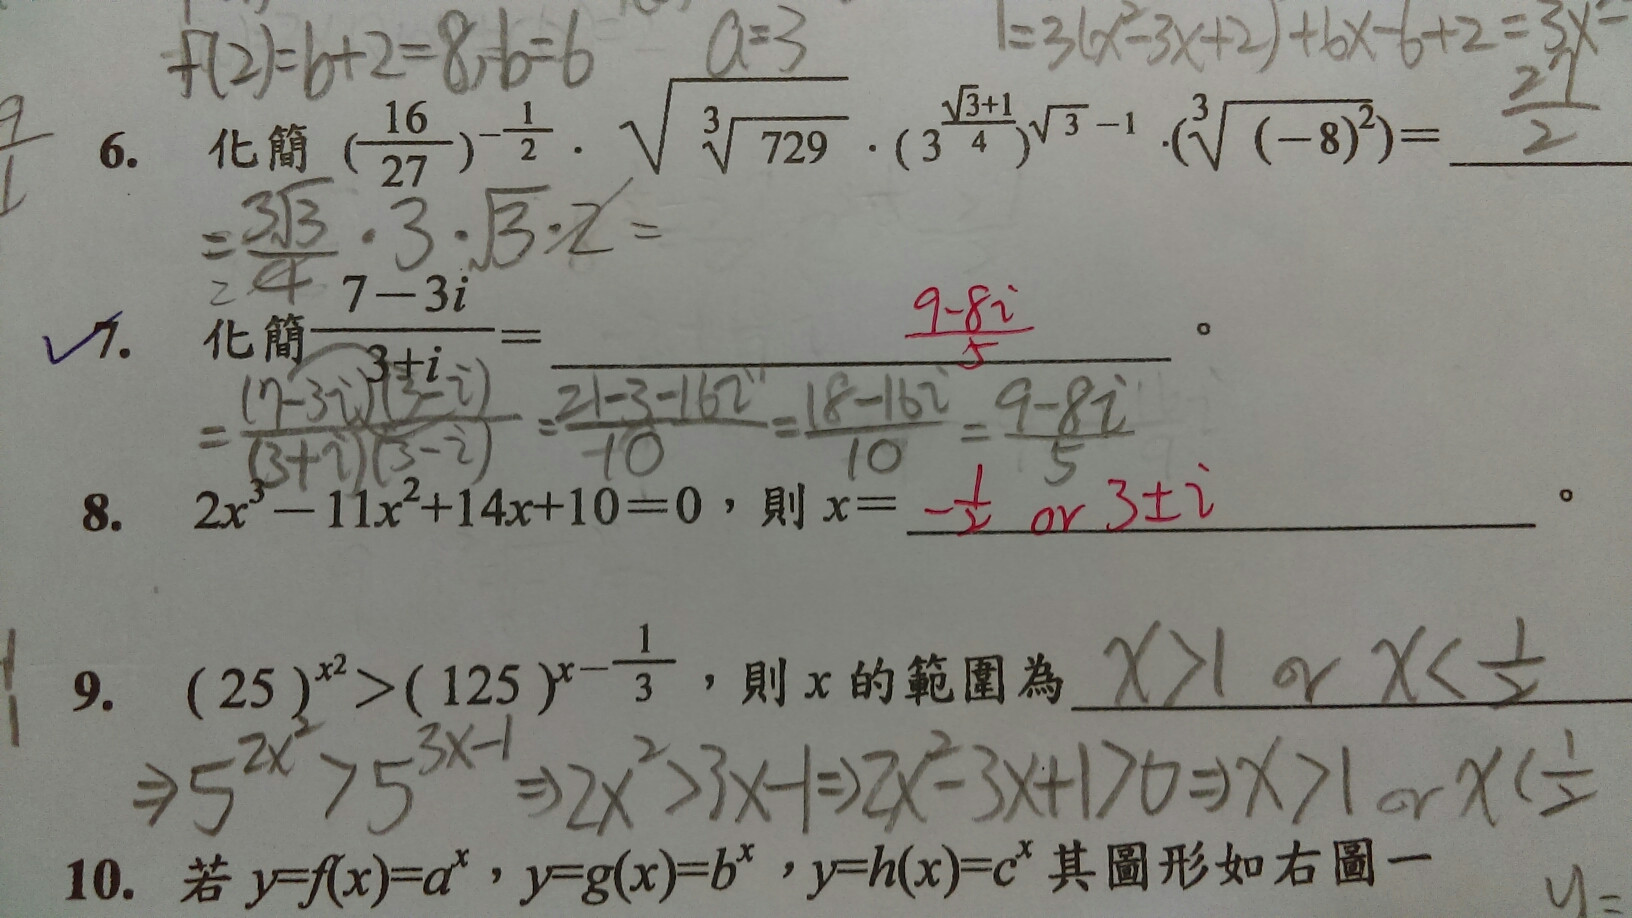 f(2)=b+2=8, b=6 a=3 1=3(x²-3x+2)+6x-6+2=3x²-
6. 化簡 (16/27)^(-1/2) · √(∛729) · (3^((√3+1)/4))^(√3-1) · (∛((-8)²))= 27/2
= 3√3/4 · 3 · √3 · 2 =
7. 化簡 (7-3i)/(3+i) = (9-8i)/5 。
= (7-3i)(3-i)/(3+i)(3-i) = (21-3-16i)/10 = (18-16i)/10 = (9-8i)/5
8. 2x³-11x²+14x+10=0，則 x= -1/2 or 3±i 。
9. (25)^(x2)>(125)^(x-1/3)，則 x 的範圍為 x>1 or x<1/2
⇒5^(2x²)>5^(3x-1)⇒2x²>3x-1⇒2x²-3x+1>0⇒x>1 or x<1/2
10. 若 y=f(x)=a^x，y=g(x)=b^x，y=h(x)=c^x 其圖形如右圖一 y=